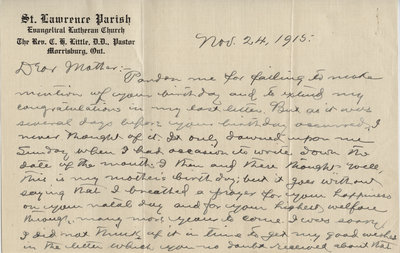 St. Lawrence Parish
Evangelical Lutheran Church
The Rev. C. H. Little, D.D., Pastor
Morrisburg, Ont.
Nov. 24, 1915.
Dear Mother:-
Pardon me for failing to make
mention of your birthday and to extend my
congratulations in my last letter. But as it was
several days before your birthday occurred, I
never thought of it. It only dawned upon me
Sunday when I had occasion to write down the
date of the month. I then and there thought: Well,
this is my mother's birthday; but it goes without
saying that I breathed a prayer for your happiness
on your natal day and for your highest welfare
through many more years to come. I was sorry
I did not think of it in time to get my good wishes
in the letter which you no doubt received about that